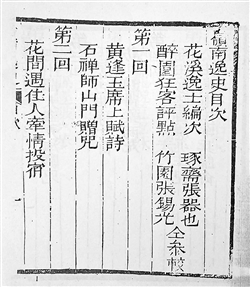 嶺南逸史目次
花溪逸士編次 琢齋張器也
醉園狂客評點 竹園張錫光 仝叅較
第一回
黃逢玉席上賦詩
石禪師山門贈咒
第二回
花間遇佳人牽情投宿